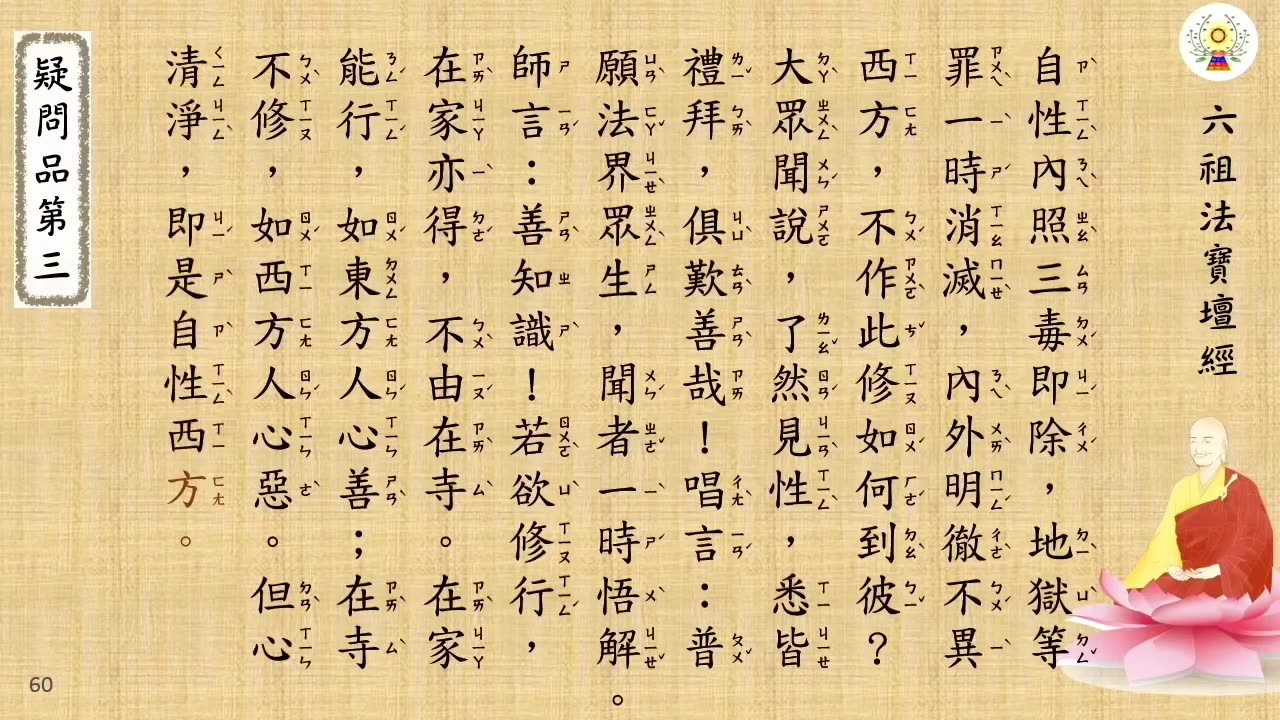 六祖法寶壇經
自性內照三毒即除，地獄等
罪一時消滅，內外明徹不異
西方，不作此修如何到彼？
大眾聞說，了然見性，悉皆
禮拜，俱歎善哉！唱言：普
願法界眾生，聞者一時悟解。
師言：善知識！若欲修行，
在家亦得，不由在寺。在家
能行，如東方人心善；在寺
不修，如西方人心惡。但心
清淨，即是自性西方。
疑問品第三
60